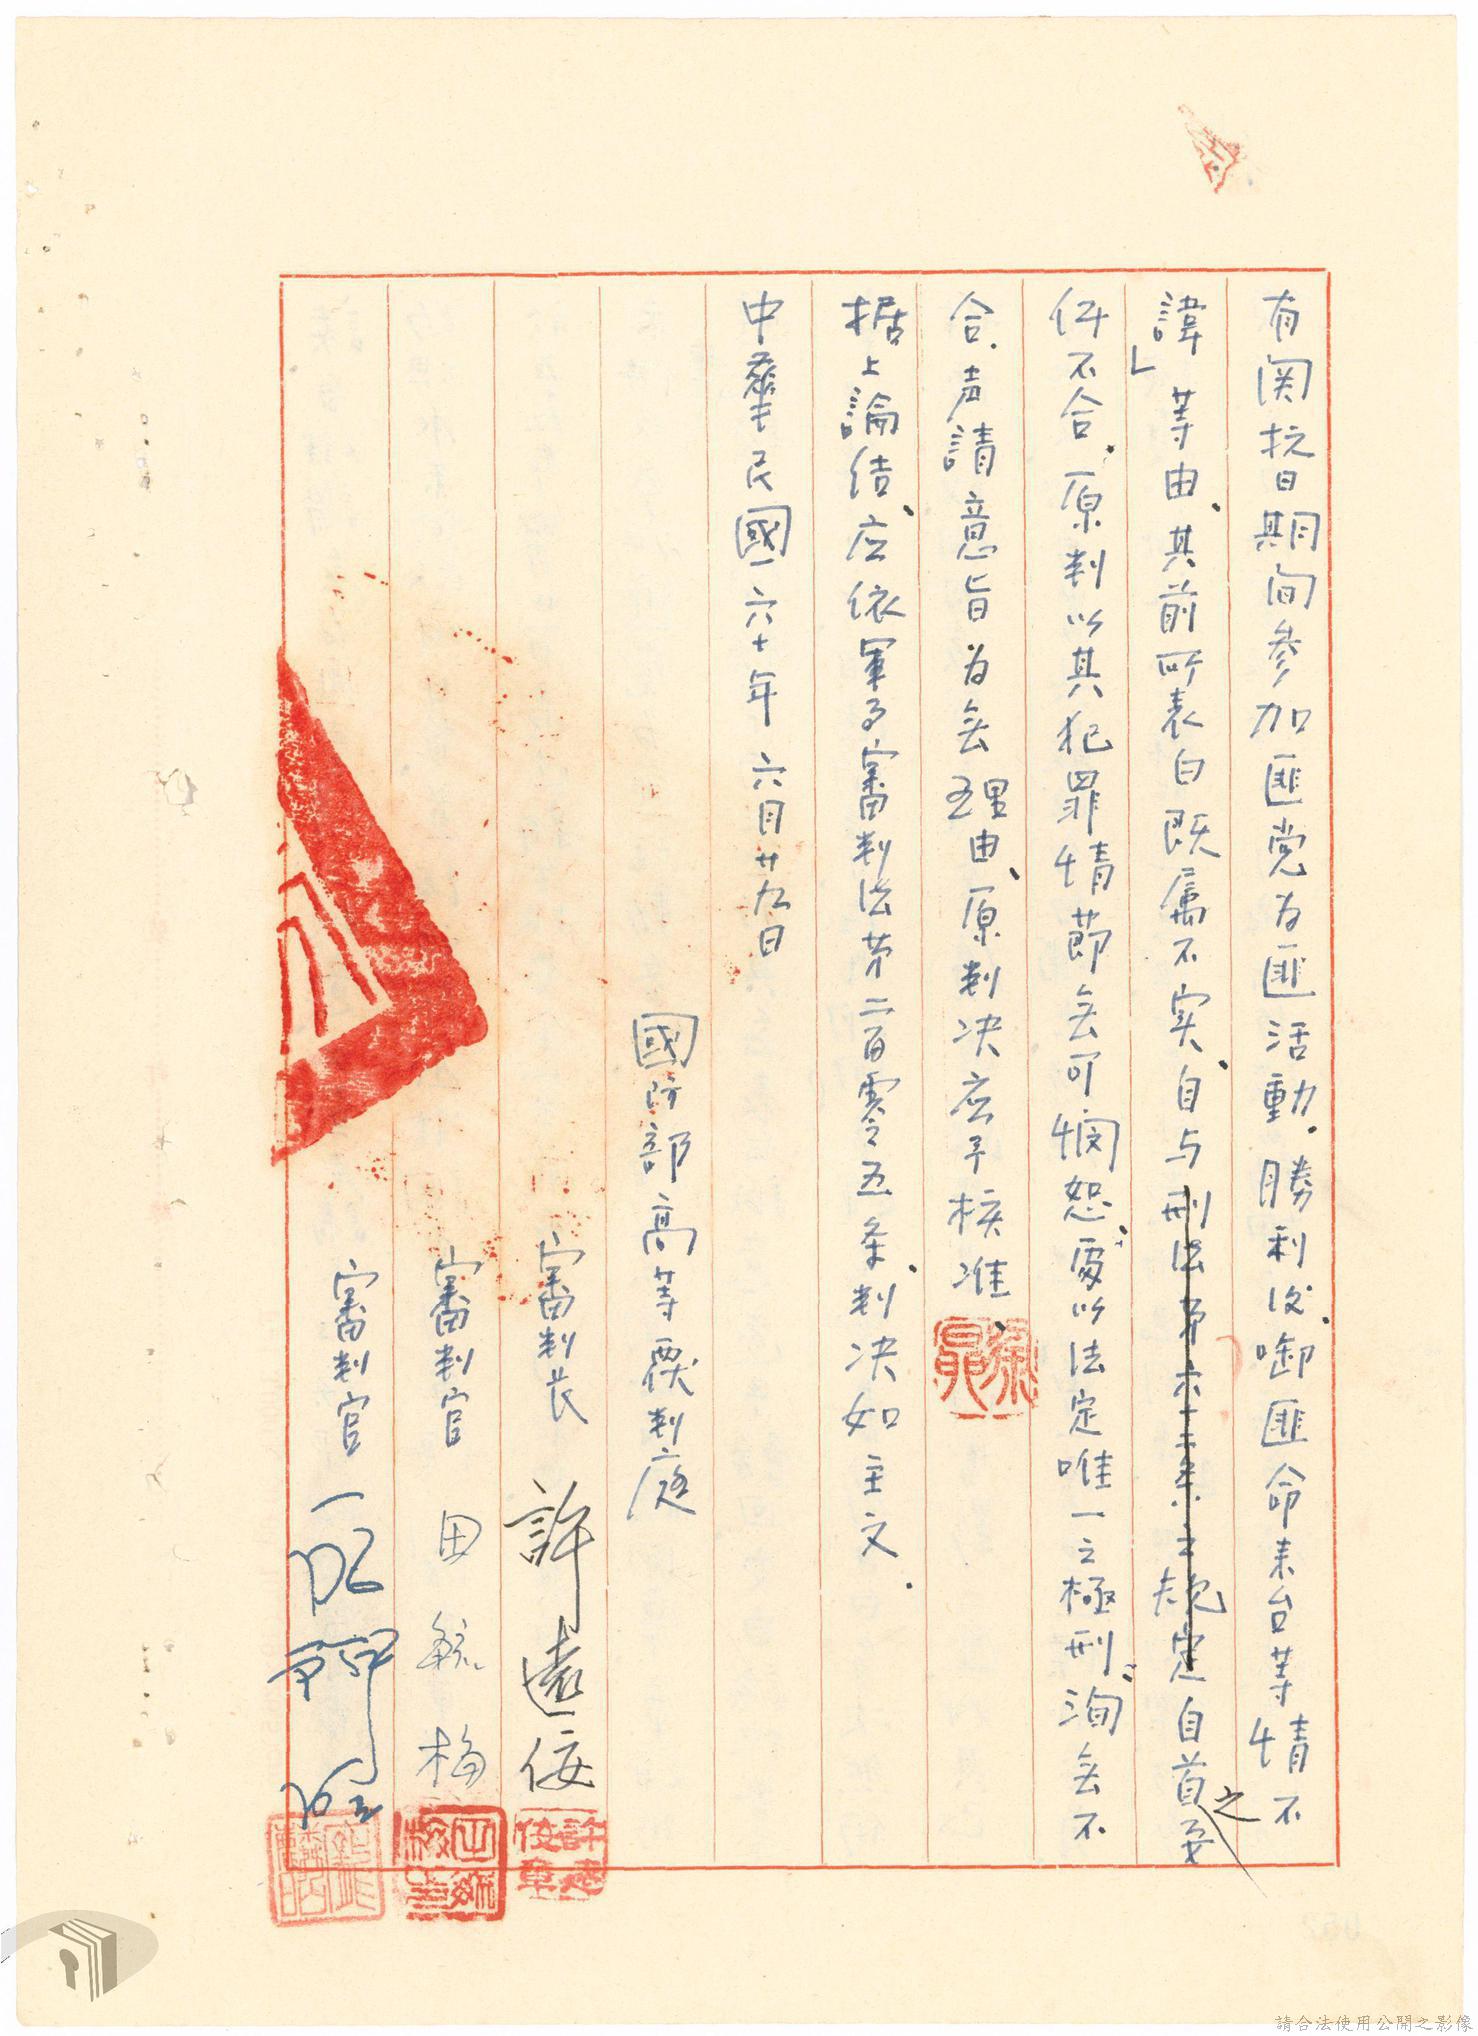 有関抗日期间参加匪党为匪活動.勝利後、啣匪命来台等情不
諱」等由、其前所表白既属不实、自与刑法第六十二条之規定自首之要
件不合、原判以其犯罪情節無可憫恕、處以法定唯一之極刑、洵無不
合.声請意旨为無理由、原判决应予核准、
据上論结、应依軍事審判法第二百零五条、判决如主文.
中華民國六十年六月廿九日
國防部高等覆判庭
審判長 許遠佞
審判官 田 梅
審判官
請合法使用公開之影像